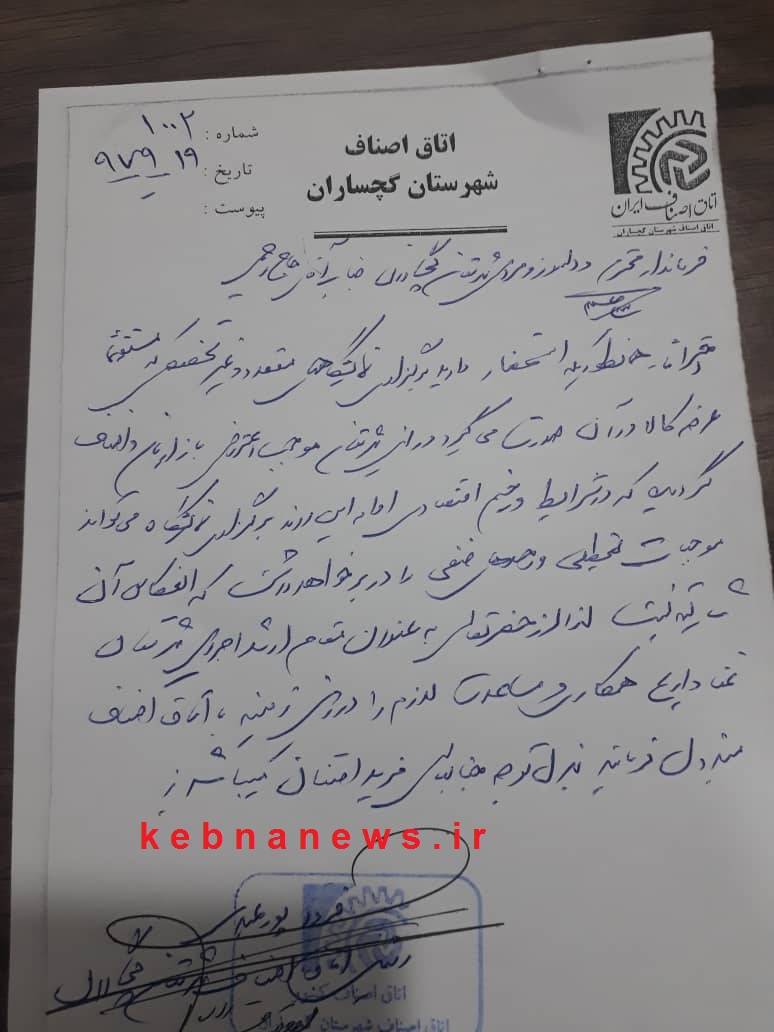 اتاق اصناف
شهرستان گچساران
شماره : ۱۰۰۲
تاریخ : ۹۷،۹،۱۹
پیوست :
اتاق اصناف ایران
اتاق اصناف شهرستان گچساران
فرماندار محترم و دلسوز و مردمی شهرستان گچساران جناب آقای حاج رحیمی
احتراماً همانطور که استحضار دارید برگزاری نمایشگاههای متعدد و غیرتخصصی که مستقیماً
عرضه کالا در آن صورت می گیرد در این شهرستان موجب اعتراض بازاریان و اصناف
گردیده که در شرایط وخیم اقتصادی ادامه این روند برگزاری نمایشگاه می تواند
موجبات تعطیلی واحدهای صنفی را در بر خواهد داشت که انعکاس آن
شایسته نیست لذا از حضرتعالی به عنوان مقام ارشد اجرایی شهرستان
تقاضا داریم همکاری و مساعدت لازم را در این زمینه با اتاق اصناف
مبذول فرمائید بذل توجه جنابعالی مزید امتنان میباشد
kebnanews.ir
رئیس اتاق اصناف شهرستان گچساران
اتاق اصناف کشور
اتاق اصناف شهرستان گچساران